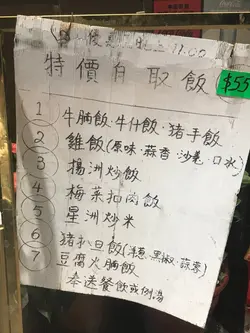 特價自取飯
$55
1 牛腩飯·牛什飯·猪手飯
2 雞飯(原味·蒜香·沙羗·口水)
3 揚洲炒飯
4 梅菜扣肉飯
5 星洲炒米
6 猪扒旦飯(黑椒·蒜蓉)
7 豆腐火腩飯
奉送餐飲或例湯